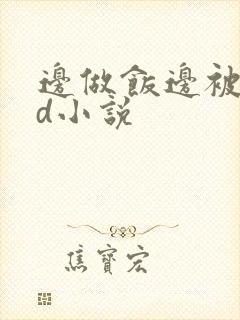 邊做飯邊被
d小說
焦寶宏